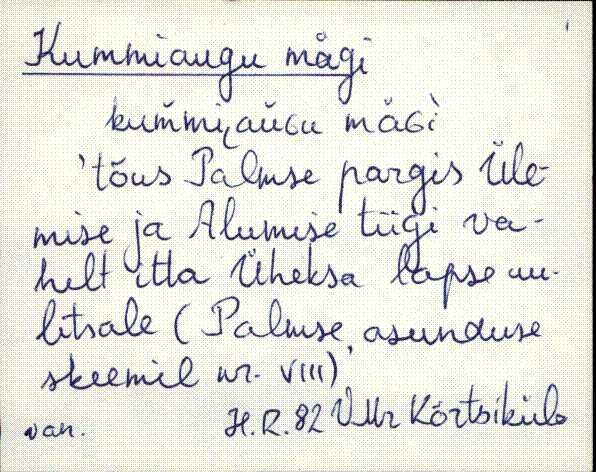 Kummiaugu mägi
kum̆mi̮aŭGu mäGì
'tõus Palmse pargis Üle-
mise ja Alumise tiigi va-
helt itta Üheksa lapse uu-
litsale (Palmse asunduse
skeemil nr. VIII)'
van. H.R. 82 VMr Kõrtsiküla